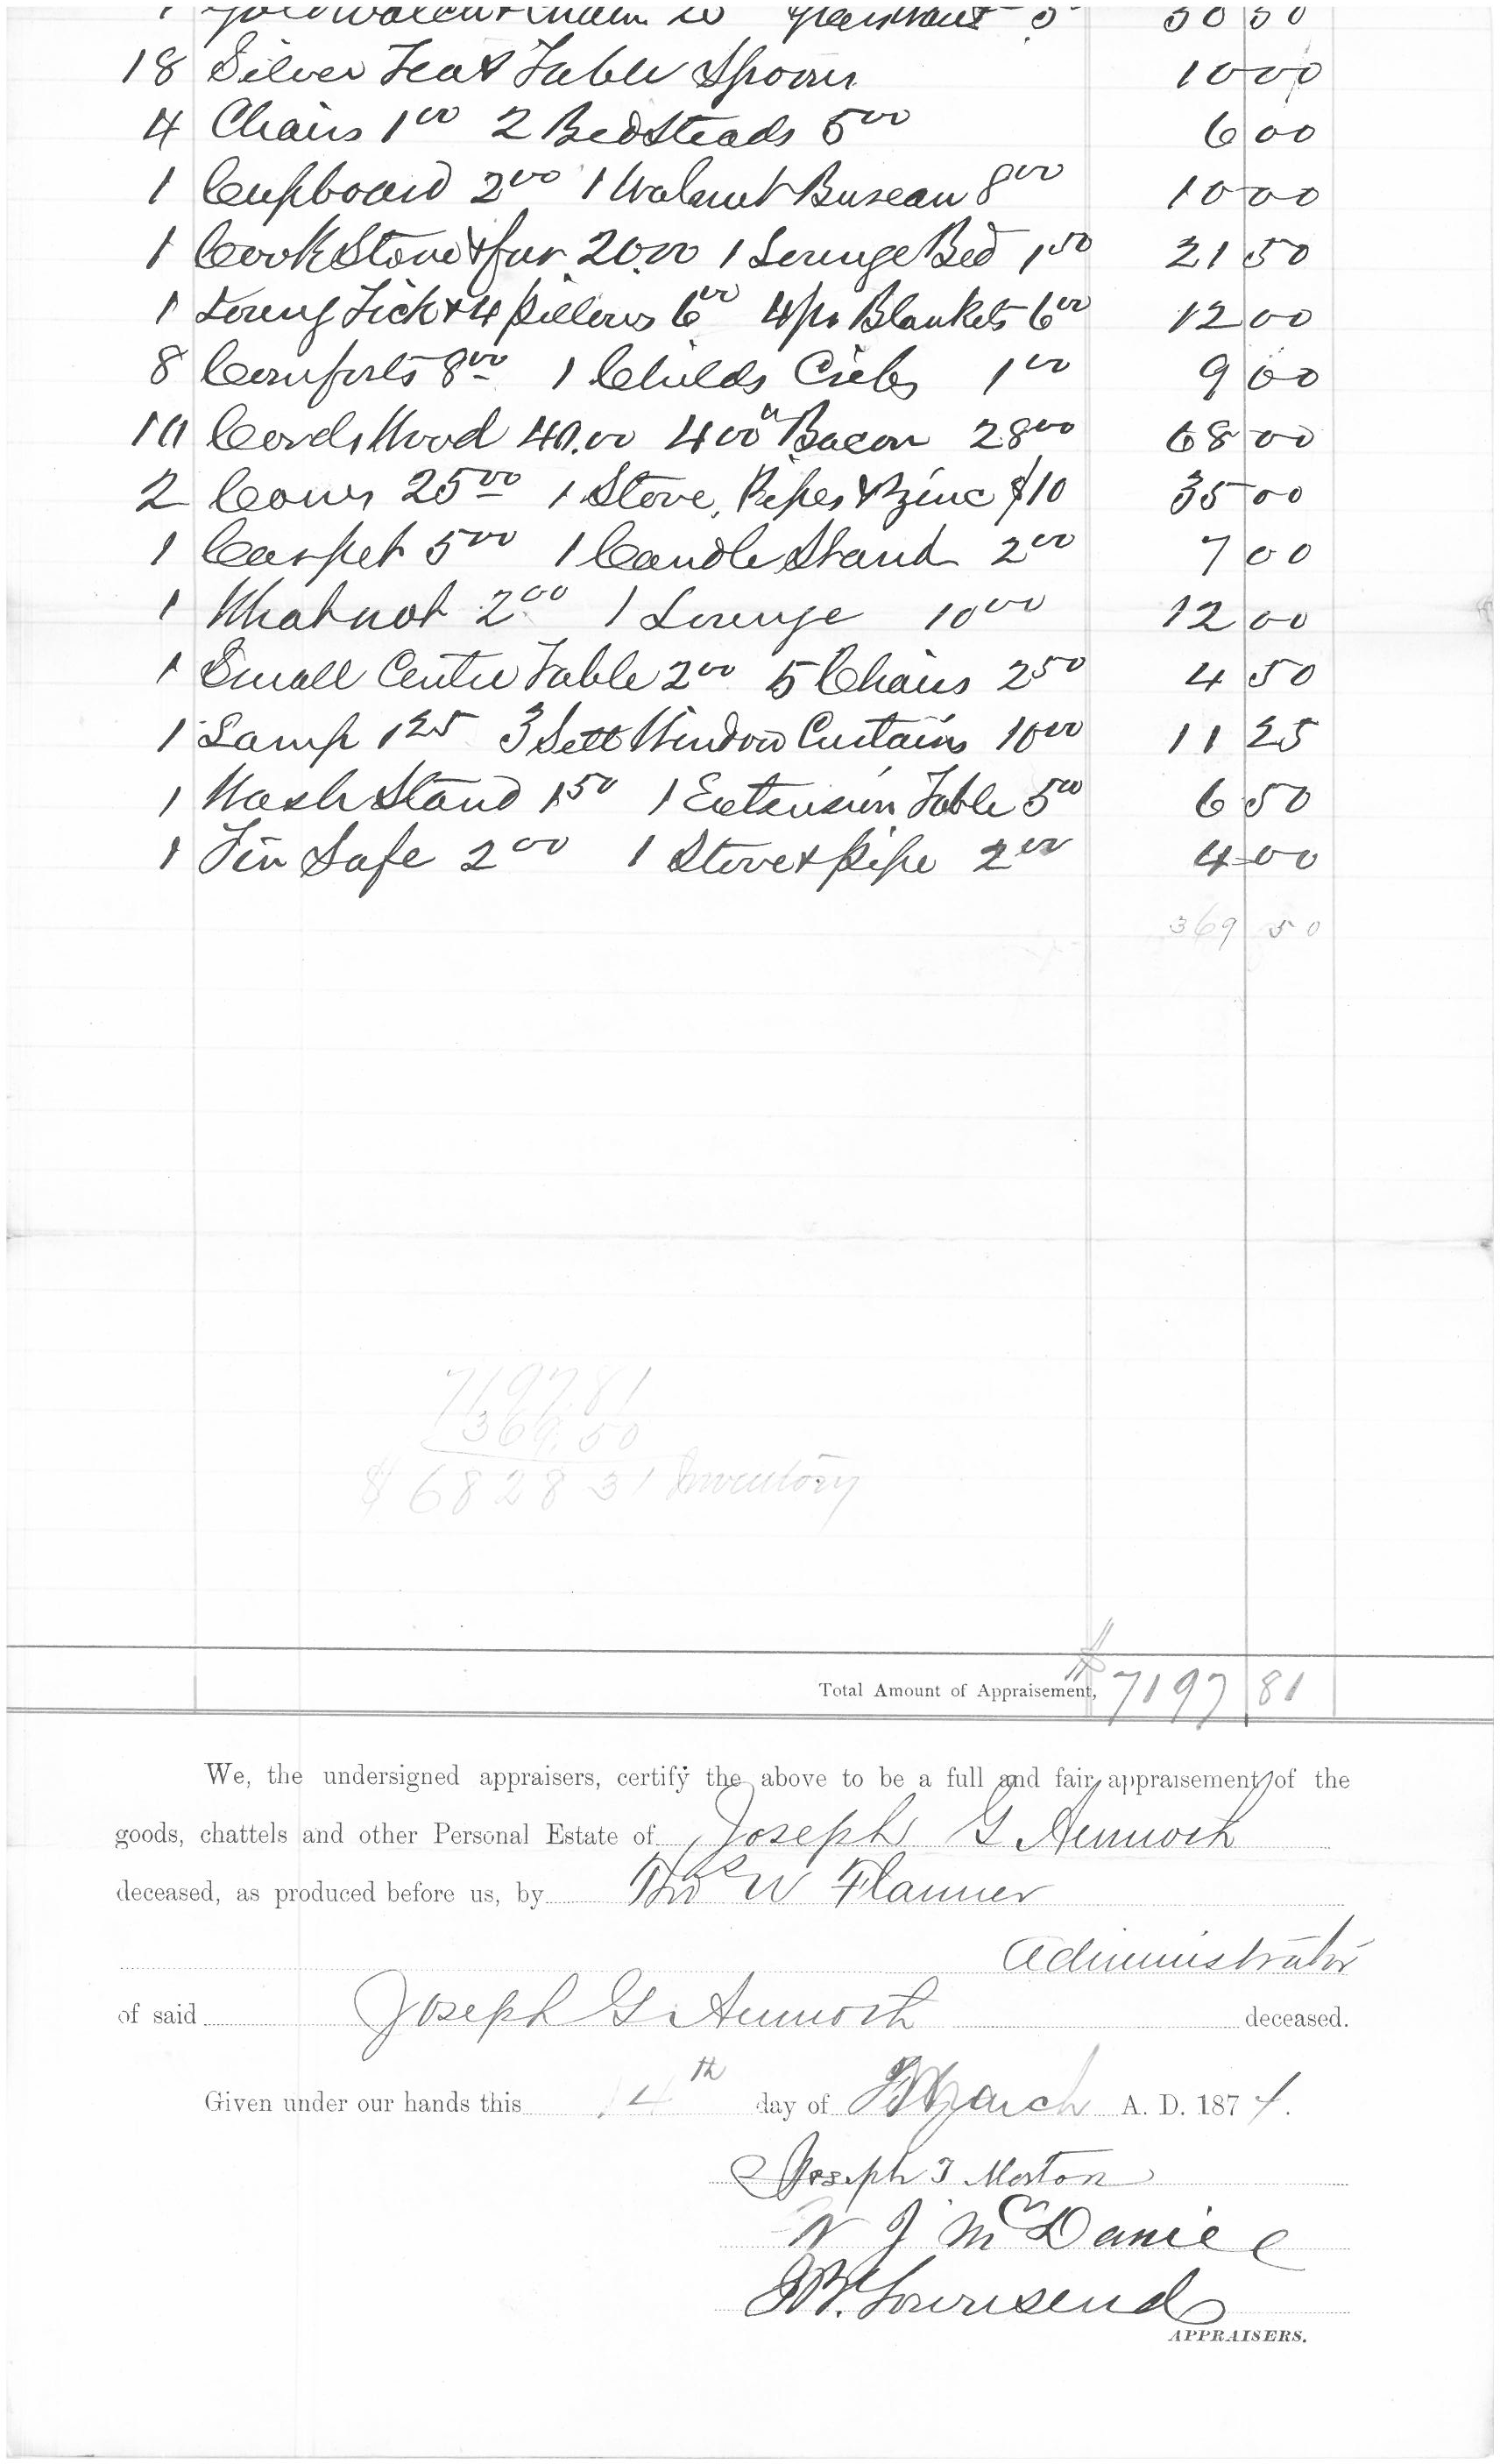 18 Silver Tea & Table Spoons 10 00
4 Chairs 1 00 2 BedSteads 5 00 6 00
1 Cupboard 2 00 1 Walnut Bureau 8 00 10 00
1 Cook Stove & fur 20.00 1 Lounge Bed 1 50 21 50
Tick & 4 pillows 6 00 4 pr Blankets 6 00 12 00
8 Comforts 8 00 1 Childs Crib 1 00 9 00
10 Cords Wood 40.00 400 Bacon 28 00 68 00
2 Cows 25 00 1 Stove, Pipes & zinc $10 35 00
1 Carpet 5 00 1 Candle Stand 2 00 7 00
1 Whatnot 2 00 1 Lounge 10 00 12 00
1 Small Centre Table 2 00 5 Chairs 2 50 4 50
1 Lamp 1 25 3 Sett Window Curtains 10 00 11 25
1 Wash Stand 1 50 1 Extension Table 5 00 6 50
1 Tin Safe 2 00 1 Stove & pipe 2 00 4 00
369 50
7197.81
369.50
$ 6828 31 Inventory
Total Amount of Appraisement, $ 7197 81
We, the undersigned appraisers, certify the above to be a full and fair appraisement of the
goods, chattels and other Personal Estate of Joseph G
deceased, as produced before us, by Thos W Flanner
Administrator
of said Joseph G deceased.
Given under our hands this 14th day of March A. D. 1874.
Joseph T Morton
W J McDaniel
Townsend
APPRAISERS.